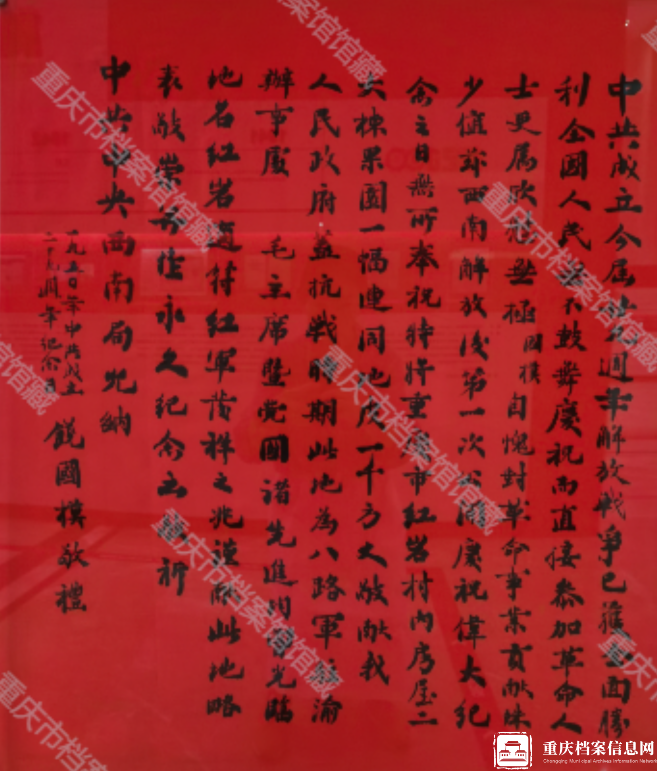 中共成立今届廿九週年解放战爭已獲全面勝
利全國人民莫不鼓舞慶祝而直接參加革命人
士更属欣慰無極國模自愧对革命事業貢献殊
少值兹西南解放后第一次公開慶祝偉大纪
念之日無所奉祝特将重慶市红岩村内房屋二
大棟果園一幅連同地皮一千方丈敬献我
人民政府蓋抗戰時期此地為八路軍駐渝
辦事處 毛主席暨党國諸先進均曾光臨
地名红岩適符红軍發祥之兆謹献此地略
表敬崇并作永久纪念 祈
中共中央西南局允納
一九五〇年中共成立
二十九週年纪念日 饒國模敬禮
重庆市档案馆馆藏
重庆档案信息网
Chongqing Municipal Archives Information Network